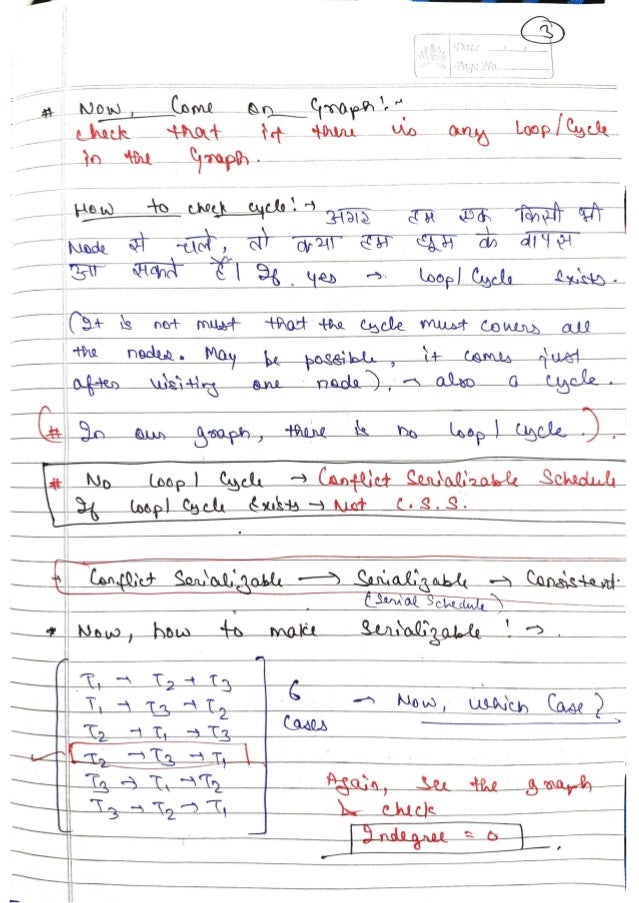 3
Date
Page No.
# Now, Come on Graph!~
check that if there is any Loop/Cycle
in the Graph.
How to check cycle!→ अगर हम एक किसी भी
Node से चले, तो क्या हम घूम के वापस
आ सकते हैं। If yes → loop/Cycle Exists.
(It is not must that the cycle must covers all
the nodes. May be possible, it comes just
after visiting one node). → also a cycle.
(# In our graph, there is no loop/cycle.).
# No loop/Cycle → Conflict Serializable Schedule
If loop/Cycle Exists → Not C.S.S.
Conflict Serializable → Serializable → Consistent.
(Serial Schedule)
* Now, how to make Serializable! →.
T1 → T2 → T3
T1 → T3 → T2
T2 → T1 → T3
T2 → T3 → T1
T3 → T1 → T2
T3 → T2 → T1
6 cases → Now, which Case?
Again, see the graph
↳ check
Indegree = 0